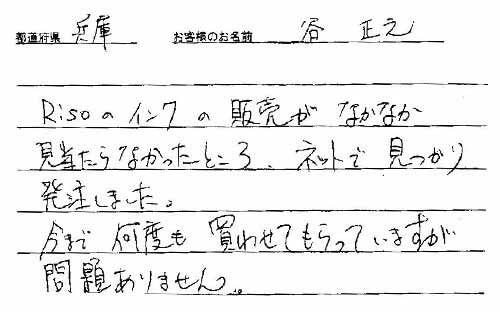 都道府県 兵庫 お客様のお名前 谷 正之
Risoのインクの販売がなかなか
見当たらなかったところ、ネットで見つかり
発注しました。
今まで何度も買わせてもらっていますが
問題ありません。